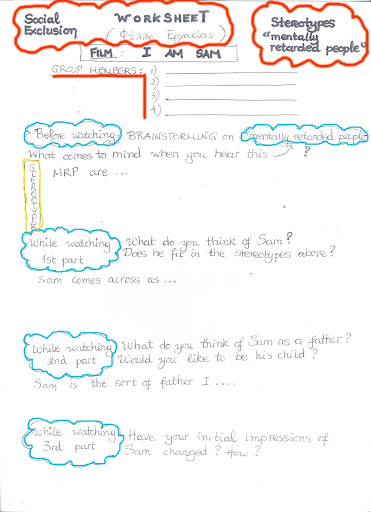 Social Exclusion
WORKSHEET
(Φύλλο Εργασίας)
Stereotypes
"mentally
retarded people"
FILM: I AM SAM
GROUP MEMBERS: 1)
2)
3)
4)
Before watching: BRAINSTORMING on mentally retarded people
What comes to mind when you hear this ?
STEREOTYPES
MRP are ...
While watching 1st part
What do you think of Sam?
Does he fit in the stereotypes above?
Sam comes across as ...
While watching 2nd part
What do you think of Sam as a father?
Would you like to be his child?
Sam is the sort of father I ....
While watching 3rd part
Have your initial impressions of
Sam changed? How?